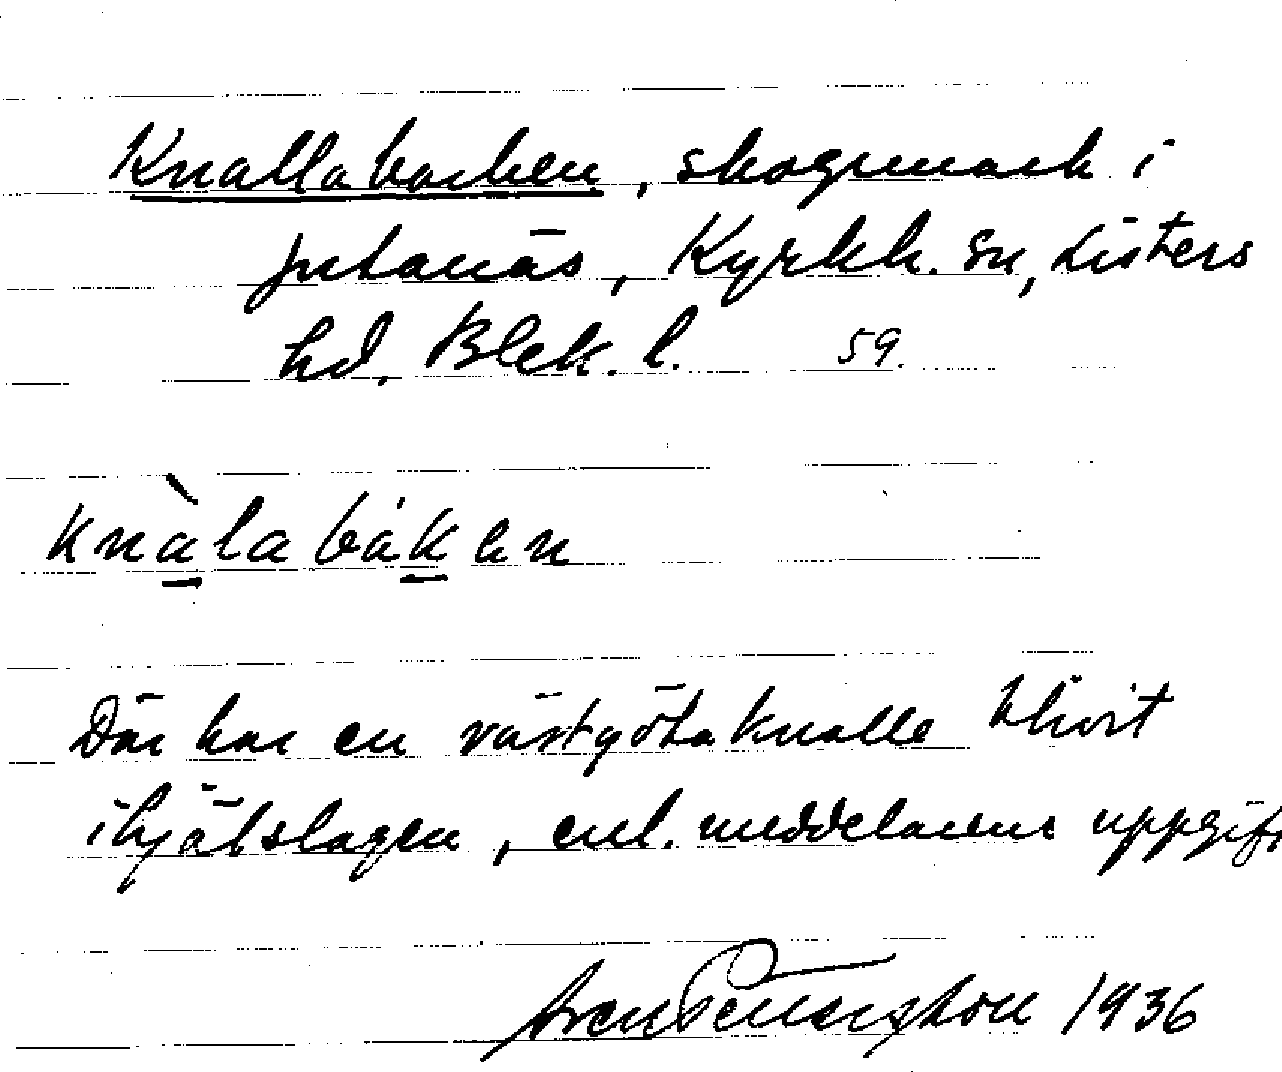 Knallabacken, skogsmark i
Jutanäs, Kyrkh. sn, Listers
hd, Blek. l. 59.
knàlabákan
Där har en västgötaknalle blivit
ihjälslagen, enl. meddelarens uppgift
Sven Benson 1936